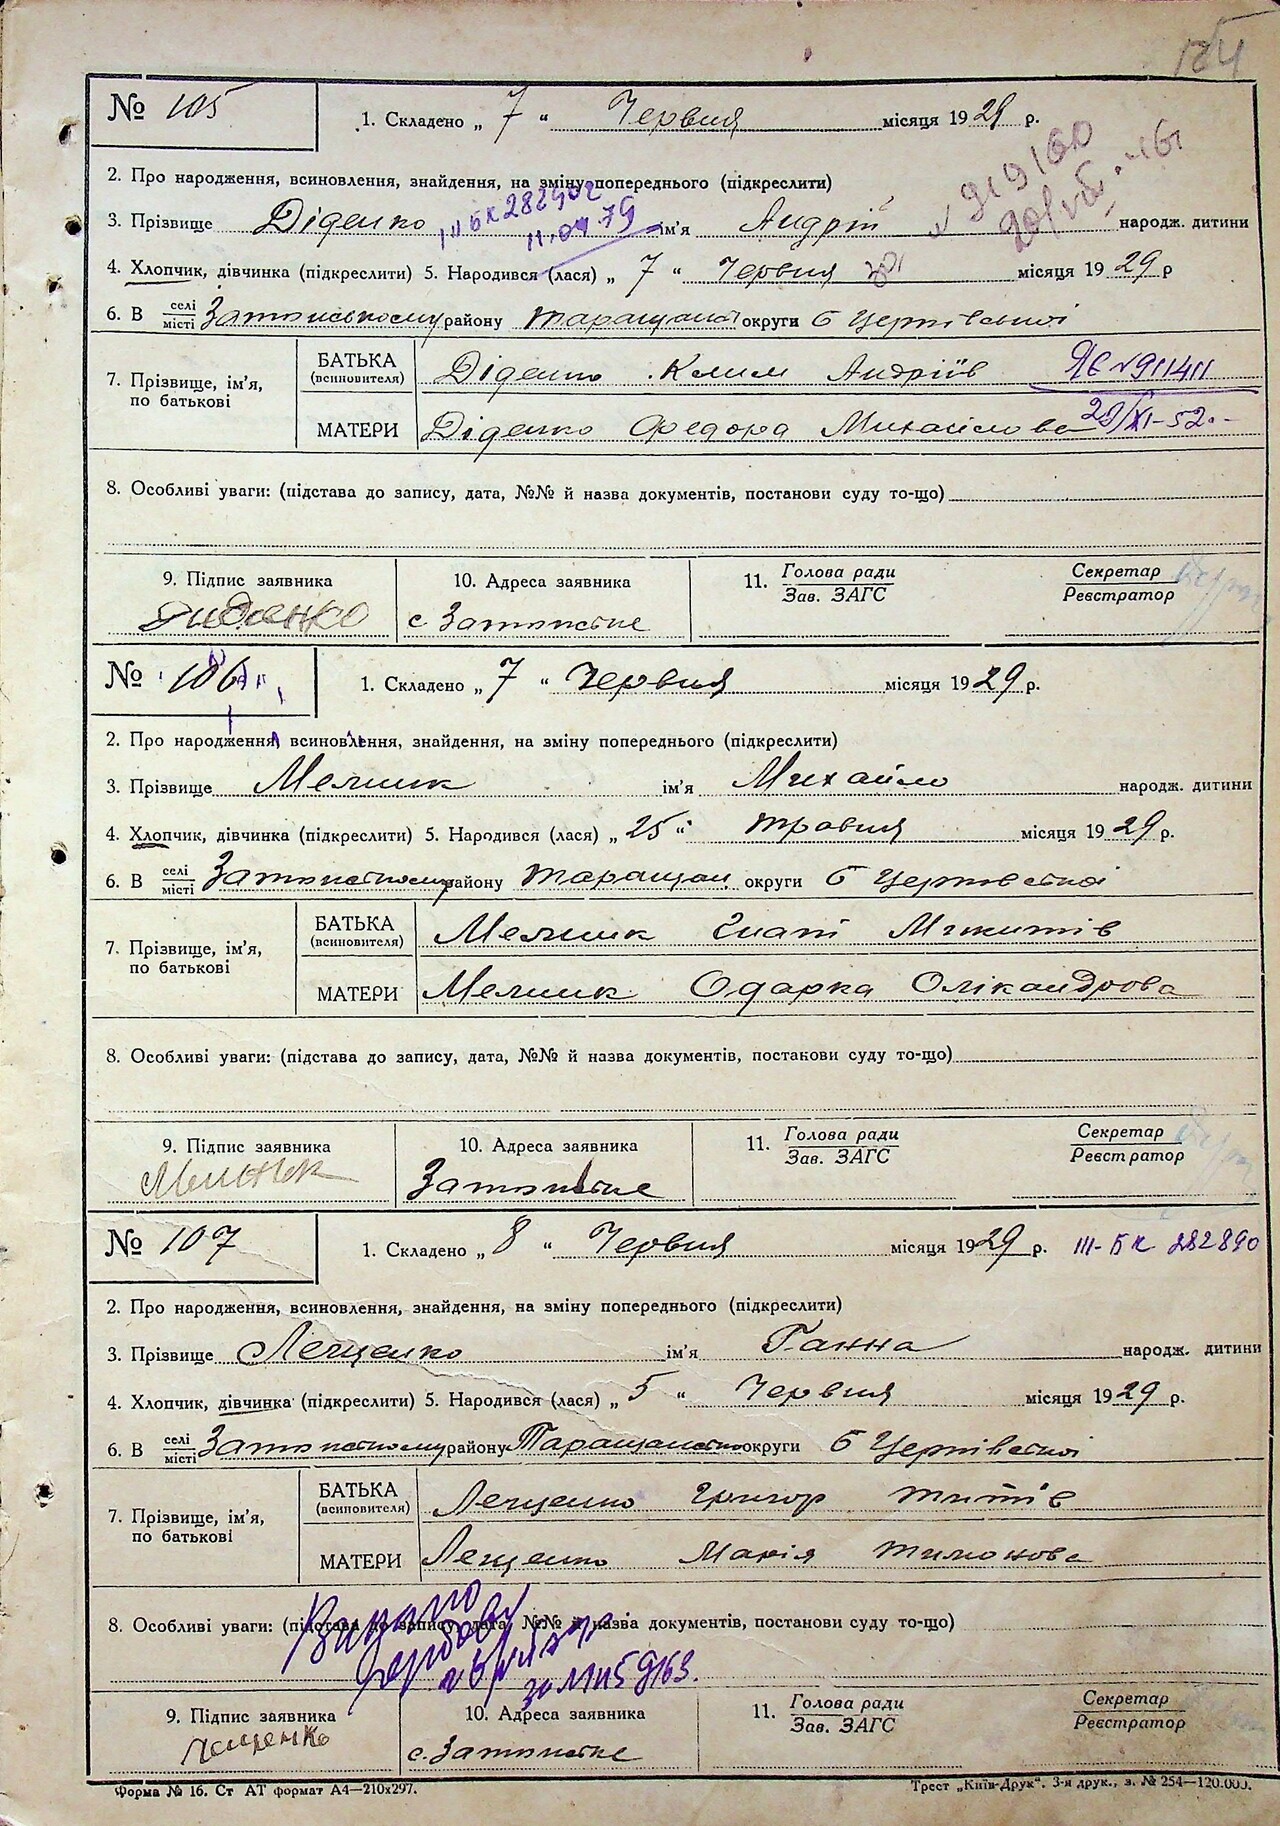 № 105
1. Складено „ 7 “ Червня місяця 1929 р.
2. Про народження, всиновлення, знайдення, на зміну попереднього (підкреслити)
3. Прізвище Діденко ім'я Андрій народж. дитини
ІІІ БК 282902
11.04.79
№ 919160
4. Хлопчик, дівчинка (підкреслити) 5. Народився (лася) „ 7 “ Червня місяця 1929 р
6. В селі/місті Затонському району Таращан округи Б Церківської
7. Прізвище, ім'я, по батькові
БАТЬКА (всиновителя) Діденко Клим Андріїв
№ 911411
МАТЕРИ Діденко Федора Михайлова
22/XI-52.
8. Особливі уваги: (підстава до запису, дата, №№ й назва документів, постанови суду то-що)
9. Підпис заявника 10. Адреса заявника 11. Голова ради/Зав. ЗАГС Секретар/Реєстратор
Диденко с. Затонське
№ 106
1. Складено „ 7 “ Червня місяця 1929 р.
2. Про народження, всиновлення, знайдення, на зміну попереднього (підкреслити)
3. Прізвище Мельник ім'я Михайло народж. дитини
4. Хлопчик, дівчинка (підкреслити) 5. Народився (лася) „ 25 “ травня місяця 1929 р.
6. В селі/місті Затонському району Таращан округи Б Церковської
7. Прізвище, ім'я, по батькові
БАТЬКА (всиновителя) Мельник Гнат Микитів
МАТЕРИ Мельник Одарка Олікандрова
8. Особливі уваги: (підстава до запису, дата, №№ й назва документів, постанови суду то-що)
9. Підпис заявника 10. Адреса заявника 11. Голова ради/Зав. ЗАГС Секретар/Реєстратор
Затонське
№ 107
1. Складено „ 8 “ Червня місяця 1929 р. III-БК 282890
2. Про народження, всиновлення, знайдення, на зміну попереднього (підкреслити)
3. Прізвище Лещенко ім'я Ганна народж. дитини
4. Хлопчик, дівчинка (підкреслити) 5. Народився (лася) „ 5 “ Червня місяця 1929 р.
6. В селі/місті Затонському району Таращансько округи Б Церківської
7. Прізвище, ім'я, по батькові
БАТЬКА (всиновителя) Лещенко Григор Титів
МАТЕРИ Лещенко Марія Тимонова
8. Особливі уваги: (підстава до запису, дата, №№ й назва документів, постанови суду то-що)
9. Підпис заявника 10. Адреса заявника 11. Голова ради/Зав. ЗАГС Секретар/Реєстратор
Лещенко с. Затонське
Форма № 16. Ст АТ формат А4—210х297.
Трест „Київ-Друк“. 3-я друк., з. № 254—120.000.